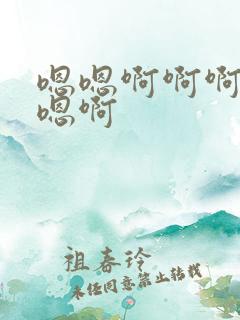 嗯嗯啊啊啊
嗯啊
祖春玲
未经同意禁止转载